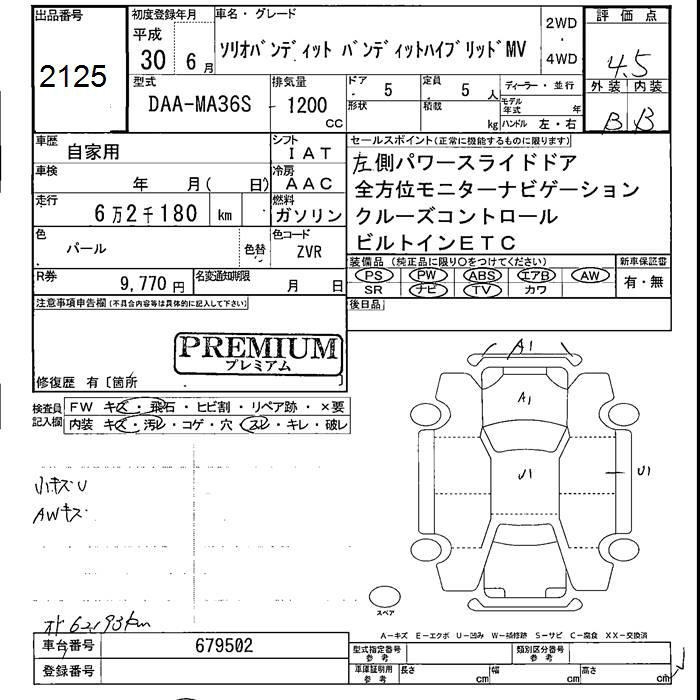 出品番号 初度登録年月 車名・グレード 2WD ・ 4WD 評価点
2125 平成 30 6月 ソリオバンディット バンディットハイブリッドMV 4.5
型式 排気量 ドア 5 定員 5人 ディーラー・並行 外装 内装
DAA-MA36S 1200 CC 形状 積載 kg モデル年式 年 ハンドル 左・右 B B
車歴 自家用 シフト IAT セールスポイント(正常に機能するものに限ります)
車検 年 月( 日) 冷房 AAC 左側パワースライドドア
全方位モニターナビゲーション
走行 6万2千180 km 燃料 ガソリン クルーズコントロール
色 パール 色替 色コード ZVR ビルトインETC
R券 9,770円 名変通知期限 月 日 装備品 (純正品に限り○をつけてください) 新車保証書
PS PW ABS エアB AW 有・無
SR ナビ TV カワ
注意事項申告欄(不具合内容等は具体的に記入して下さい) 後日品
PREMIUM
プレミアム
修復歴 有〔箇所 〕
検査員記入欄 FW キズ・飛石・ヒビ割・リペア跡・×要
内装 キズ・汚レ・コゲ・穴・スレ・キレ・破レ
A1
A1
U1
U1
小キズU
AWキズ
スペア
62,193km
A－キズ E－エクボ U－凹み W－補修跡 S－サビ C－腐食 XX－交換済
車台番号 679502 型式指定番号 参考 類別区分番号 参考
登録番号 車庫証明用 参考 長さ cm 幅 cm 高さ cm